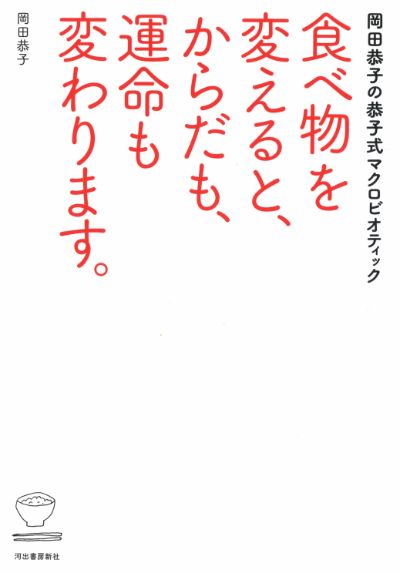 岡田恭子の恭子式マクロビオティック
食べ物を
変えると、
からだも、
運命も
変わります。
岡田恭子
河出書房新社